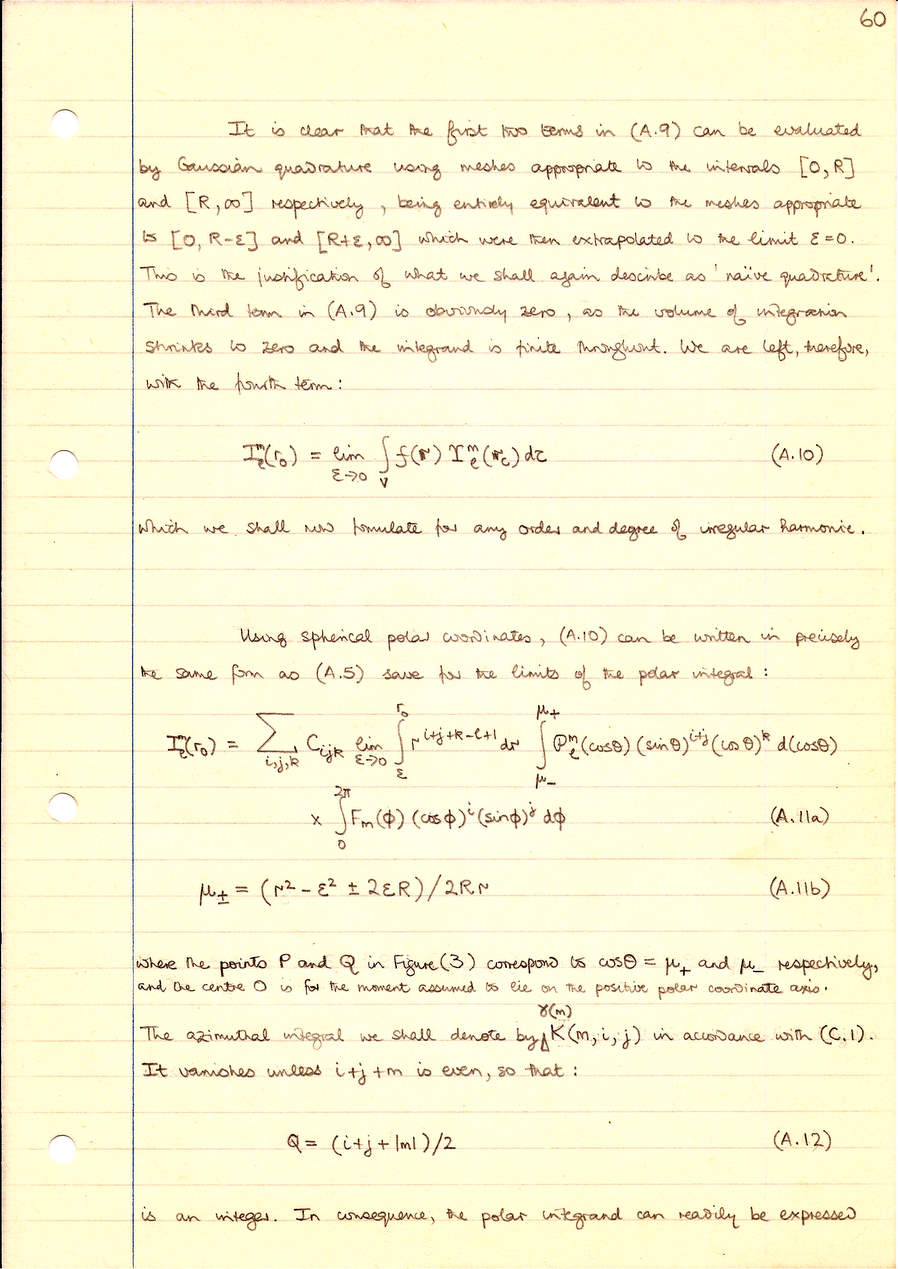 60
It is clear that the first two terms in (A.9) can be evaluated
by Gaussian quadrature using meshes appropriate to the intervals [0,R]
and [R,∞] respectively, being entirely equivalent to the meshes appropriate
to [0, R-ε] and [R+ε,∞] which were then extrapolated to the limit ε=0.
This is the justification of what we shall again describe as 'naïve quadrature'.
The third term in (A.9) is obviously zero, as the volume of integration
shrinks to zero and the integrand is finite throughout. We are left, therefore,
with the fourth term:
I_ℓ^m(r₀) = lim_{ε→0} ∫_V f(𝐫) Υ_ℓ^m(𝐫_c) dτ (A.10)
which we shall now formulate for any order and degree of irregular harmonic.
Using spherical polar coordinates, (A.10) can be written in precisely
the same form as (A.5) save for the limits of the polar integral:
I_ℓ^m(r₀) = Σ_{i,j,k} C_{ijk} lim_{ε→0} ∫_ε^{r₀} r^{i+j+k-ℓ+1} dr ∫_{μ₋}^{μ₊} P_ℓ^m(cosθ) (sinθ)^{i+j} (cosθ)^k d(cosθ)
× ∫_0^{2π} F_m(φ) (cosφ)^i (sinφ)^j dφ (A.11a)
μ± = (r² - ε² ± 2εR)/2Rr (A.11b)
where the points P and Q in Figure(3) correspond to cosθ = μ₊ and μ₋ respectively,
and the centre O is for the moment assumed to lie on the positive polar coordinate axis.
The azimuthal integral we shall denote by γ(m) K(m,i,j) in accordance with (C.1).
It vanishes unless i+j+m is even, so that:
Q = (i+j+|m|)/2 (A.12)
is an integer. In consequence, the polar integrand can readily be expressed